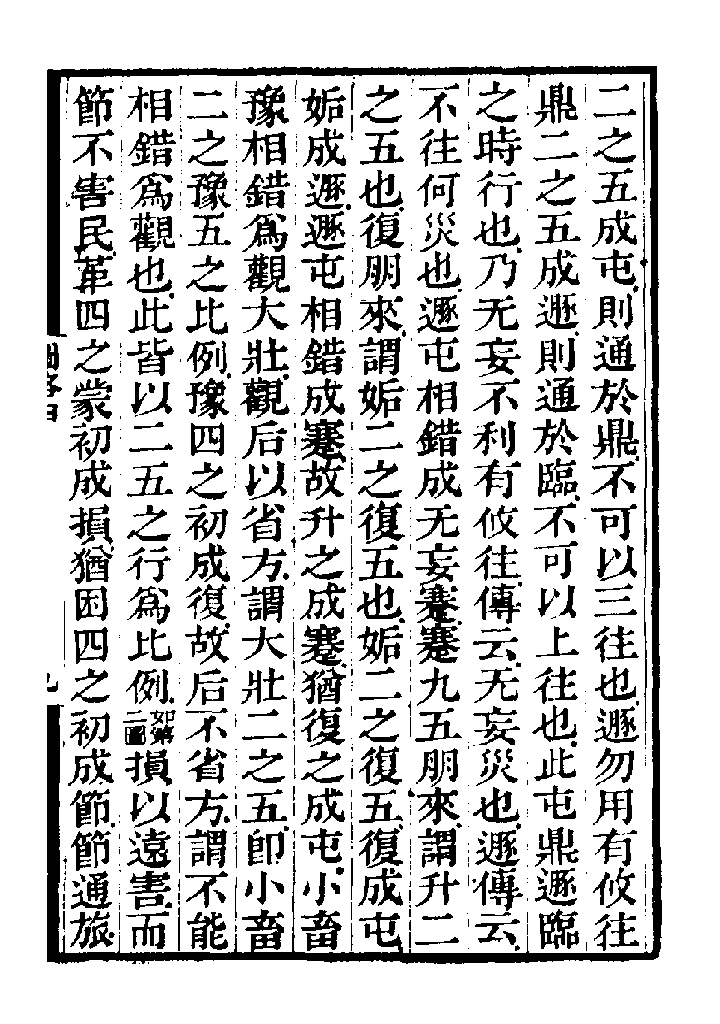 二之五成屯則通於鼎不可以三往也遯勿用有攸往
鼎二之五成遯則通於臨不可以上往也此屯鼎遯臨
之時行也乃无妄不利有攸往傳云无妄災也遯傳云
不往何災也遯屯相錯成无妄蹇蹇九五朋來謂升二
之五也復朋來謂姤二之復五也姤二之復五復成屯
姤成遯遯屯相錯成蹇故升之成蹇猶復之成屯小畜
豫相錯爲觀大壯觀后以省方謂大壯二之五卽小畜
二之豫五之比例豫四之初成復故后不省方謂不能
相錯爲觀也此皆以二五之行爲比例如第二圖損以遠害而
節不害民革四之蒙初成損猶困四之初成節節通旅